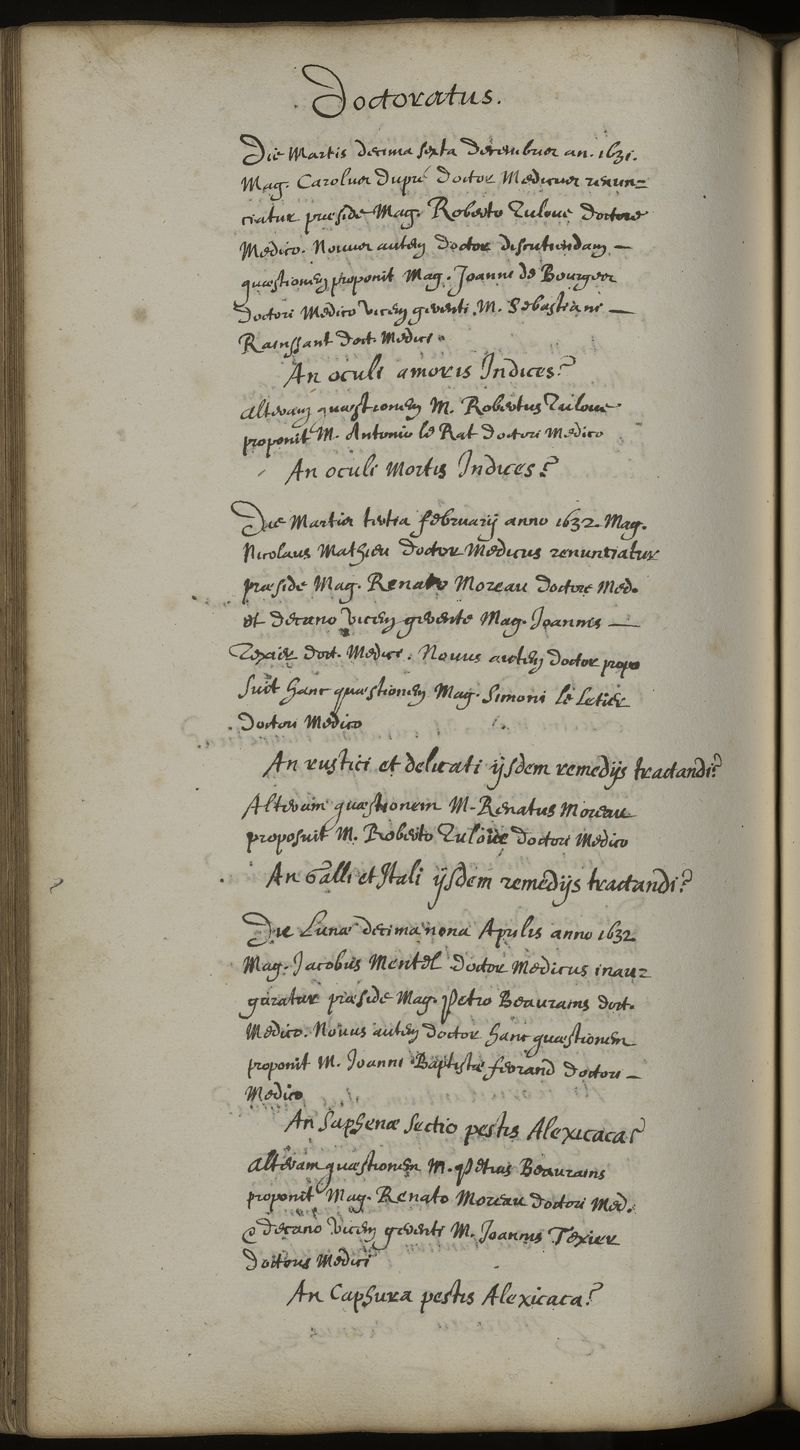 Doctoratus.
Die Martis decima sexta decembris an. 1631.
Mag. Carolus Dupré Doctor Medicus renun=
ciatur præside Mag. Roberto Tulloue doctore
Medico. Novus autem doctor discutiendam —
quæstionem proponit Mag. Joanni de Bourges
doctori Medico vicem gerenti M. Sebastiani —
Rainssant doct. Medici.
An oculi amoris Indices?
alteram quæstionem M. Robertus Tulloue
proponit M. Antonio le Rat Doctori Medico
An oculi Mortis Indices?
Die Martis tertia februarij anno 1632. Mag.
Nicolaus Mathieu doctor Medicus renuntiatur
præside Mag. Renato Moreau doctore Med.
et decano vicem gerente Mag. Joannis —
Texier doct. Medici. Novus autem doctor propo
suit hanc quæstionem Mag. Simoni le Letier
doctori Medico
An rustici et delicati ijsdem remedijs tractandi?
Alteram quæstionem M. Renatus Moreau
proposuit M. Roberto Tuloue doctori Medico
An Galli et Itali ijsdem remedijs tractandi?
Die Lunæ decima nona Aprilis anno 1632
Mag. Jacobus Mentel Doctor Medicus inau=
guratur præside Mag. Petro Beaurains doct.
Medico. Novus autem doctor hanc quæstionem
proponit M. Joanni Baptistæ ferrand doctori —
Medico
An Saphenæ sectio pestis Alexicaca?
alteram quæstionem M. Petrus Beaurains
proponit Mag. Renato Moreau doctori Med.
& decano vicem gerenti M. Joannis Texier
doctoris Medici
An Caphura pestis Alexicaca?